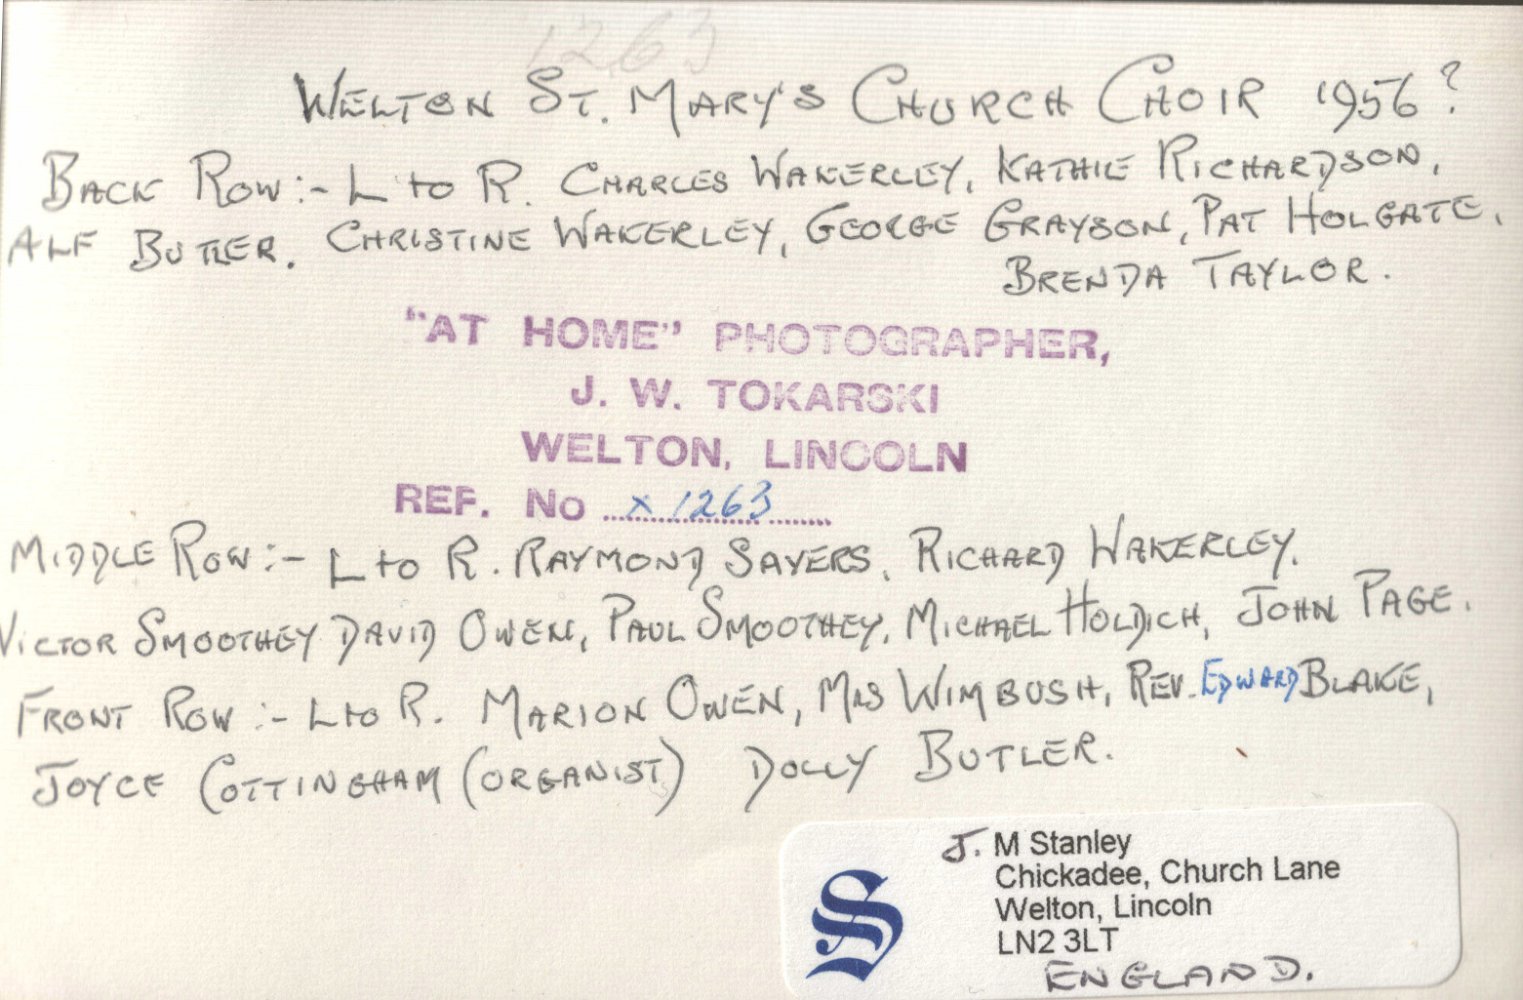 1263
WELTON ST. MARY'S CHURCH CHOIR 1956?
BACK ROW:- L to R. CHARLES WAKERLEY, KATHIE RICHARDSON,
ALF BUTLER. CHRISTINE WAKERLEY, GEORGE GRAYSON, PAT HOLGATE,
BRENDA TAYLOR.
"AT HOME" PHOTOGRAPHER,
J. W. TOKARSKI
WELTON, LINCOLN
REF. No x 1263
MIDDLE ROW:- L to R. RAYMOND SAYERS, RICHARD WAKERLEY.
VICTOR SMOOTHEY DAVID OWEN, PAUL SMOOTHEY, MICHAEL HOLDICH, JOHN PAGE.
FRONT ROW:- L to R. MARION OWEN, MRS WIMBUSH, REV. EDWARD BLAKE,
JOYCE COTTINGHAM (ORGANIST) DOLLY BUTLER.
S
J. M Stanley
Chickadee, Church Lane
Welton, Lincoln
LN2 3LT
ENGLAND.